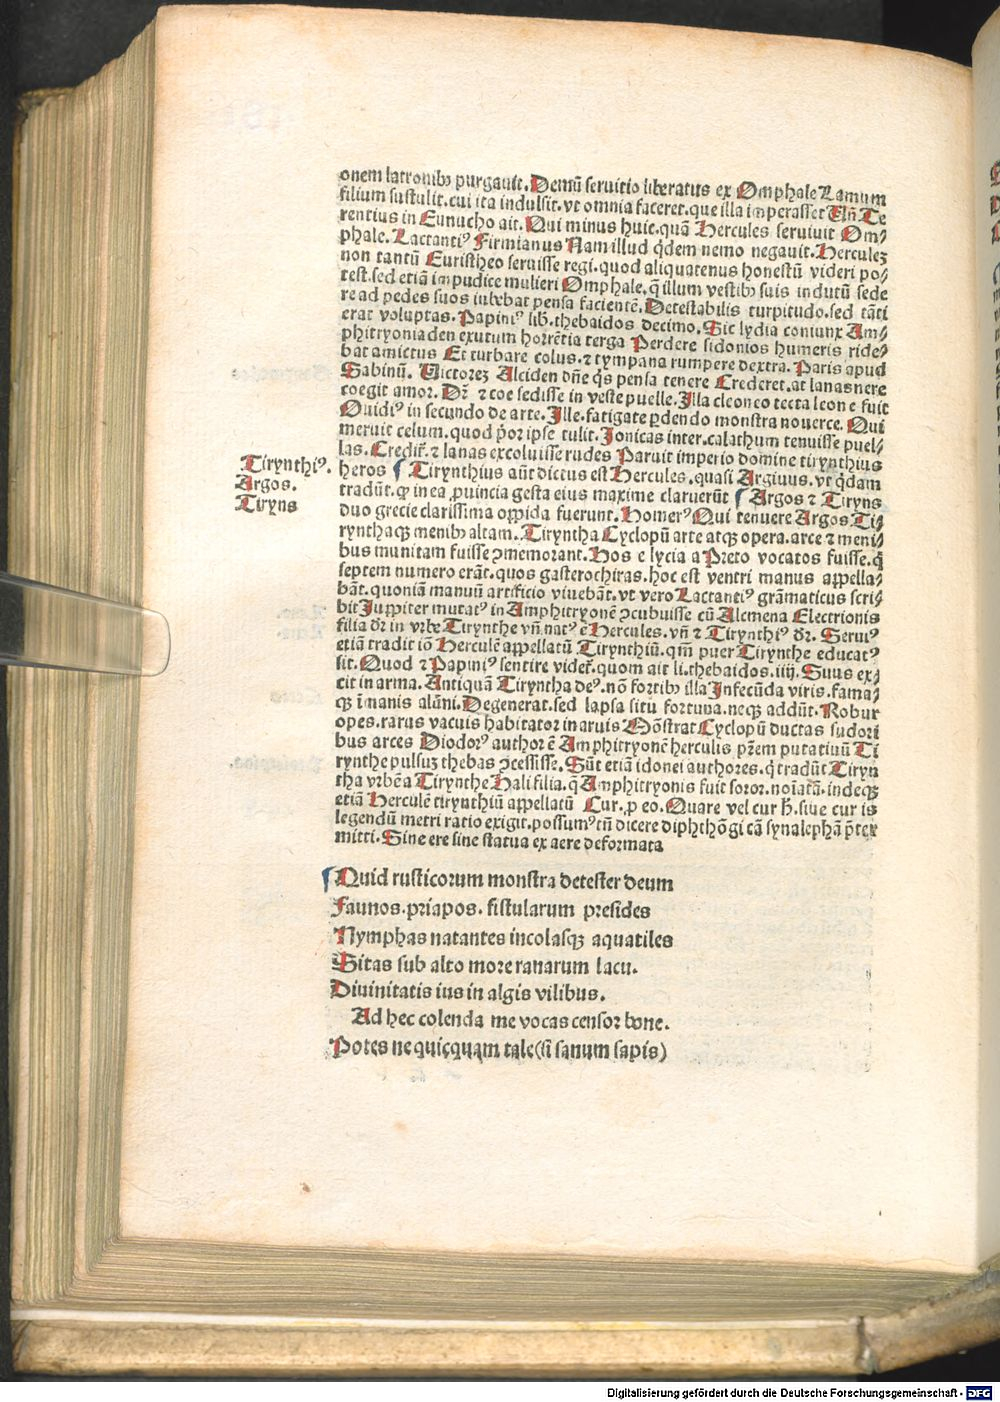 onem latronibꝫ purgauit. Demū seruitio liberatus ex Omphale Lamum
filium sustulit. cui ita indulsit. vt omnia faceret. que illa imperasset Vñ Te
rentius in Eunucho ait. Qui minus huic. quā Hercules seruiuit Om⸗
phale. Lactanti⁹ Firmianus Nam illud q̇dem nemo negauit. Herculeꝫ
non tantū Euristheo seruisse regi. quod aliquatenus honestū videri po⸗
test. sed etiā impudice mulieri Omphale. q̄ illum vestibꝫ suis indutū sede
re ad pedes suos iubebat pensa facientē. Detestabilis turpitudo. sed tāti
erat voluptas. Papini⁹ lib. thebaidos decimo. Sic lydia coniunx Am⸗
phitryoniaden exutum horrētia terga Perdere sidonios humeris ride⸗
bat amictus Et turbare colus. ⁊ tympana rumpere dextra. Paris apud
Sabinū. Victoreꝫ Alciden dñe q̇s pensa tenere Crederet. at lanas nere
coegit amor. Dr̄ ⁊ eoe sedisse in veste puelle. Illa cleoneo tecta leone fuit
Ouidi⁹ in secundo de arte. Ille. fatigate ꝑdendo monstra nouerce. Qui
meruit celum. quod p̄or ipse tulit. Ionicas inter. calathum tenuisse puel⸗
las. Credit̄. ⁊ lanas excoluisse rudes Paruit imperio domine tirynthius
Tirynthi⁹.
heros ⸿ Tirynthius aūt dictus est Hercules. quasi Argiuus. vt q̇dam
Argos.
tradūt. ꝙ in ea ꝓuincia gesta eius maxime claruerūt ⸿ Argos ⁊ Tiryns
Tiryns
duo grecie clarissima oppida fuerunt. Homer⁹ Qui tenuere Argos Ti⸗
rynthaqꝫ menibꝫ altam. Tiryntha Cyclopū arte atqꝫ opera. arce ⁊ meni⸗
bus munitam fuisse ꝯmemorant. Hos e lycia a Preto vocatos fuisse. q̇
septem numero erāt. quos gasterochiras. hoc est ventri manus appella⸗
bāt. quoniā manuū artificio viuebāt. vt vero Lactanti⁹ grāmaticus scri⸗
bit Iuppiter mutat⁹ in Amphitryonē ꝯcubuisse cū Alcmena Electrionis
filia dr̄ in vrbe Tirynthe vñ nat⁹ ē Hercules. vñ ⁊ Tirynthi⁹ dr̄. Serui⁹
etiā tradit iō Herculē appellatū Tirynthiū. qm̄ puer Tirynthe educat⁹
sit. Quod ⁊ Papini⁹ sentire videt̄. quom ait li. thebaidos. iiij. Suus ex⸗
cit in arma. Antiquā Tiryntha de⁹. nō fortibꝫ illa Infecūda viris. fama⸗
qꝫ īmanis alūni. Degenerat. sed lapsa situ fortuna. neqꝫ addūt. Robur
opes. rarus vacuis habitator in aruis Mōstrat Cyclopū ductas sudori
bus arces Diodor⁹ author ē Amphitryonē herculis pr̄em putatiuū Ti
rynthe pulsuꝫ thebas ꝯcessisse. Sūt etiā idonei authores. q̇ tradūt Tiryn
tha vrbē a Tirynthe Hali filia. q̄ Amphitryonis fuit soror. noīatā. indeqꝫ
etiā Herculē tirynthiū appellatū Cur. ꝓ eo. Quare vel cur h̄. siue cur is
legendū metri ratio exigit. possum⁹ tñ dicere diphthōgi cā synalephā p̄ter
mitti. Sine ere sine statua ex aere deformata
⸿ Quid rusticorum monstra detester deum
Faunos. priapos. fistularum presides
Nymphas natantes incolasqꝫ aquatiles
Sitas sub alto more ranarum lacu.
Diuinitatis ius in algis vilibus.
Ad hec colenda me vocas censor bone.
Potes ne quicquam tale (si sanum sapis)
Digitalisierung gefördert durch die Deutsche Forschungsgemeinschaft - DFG